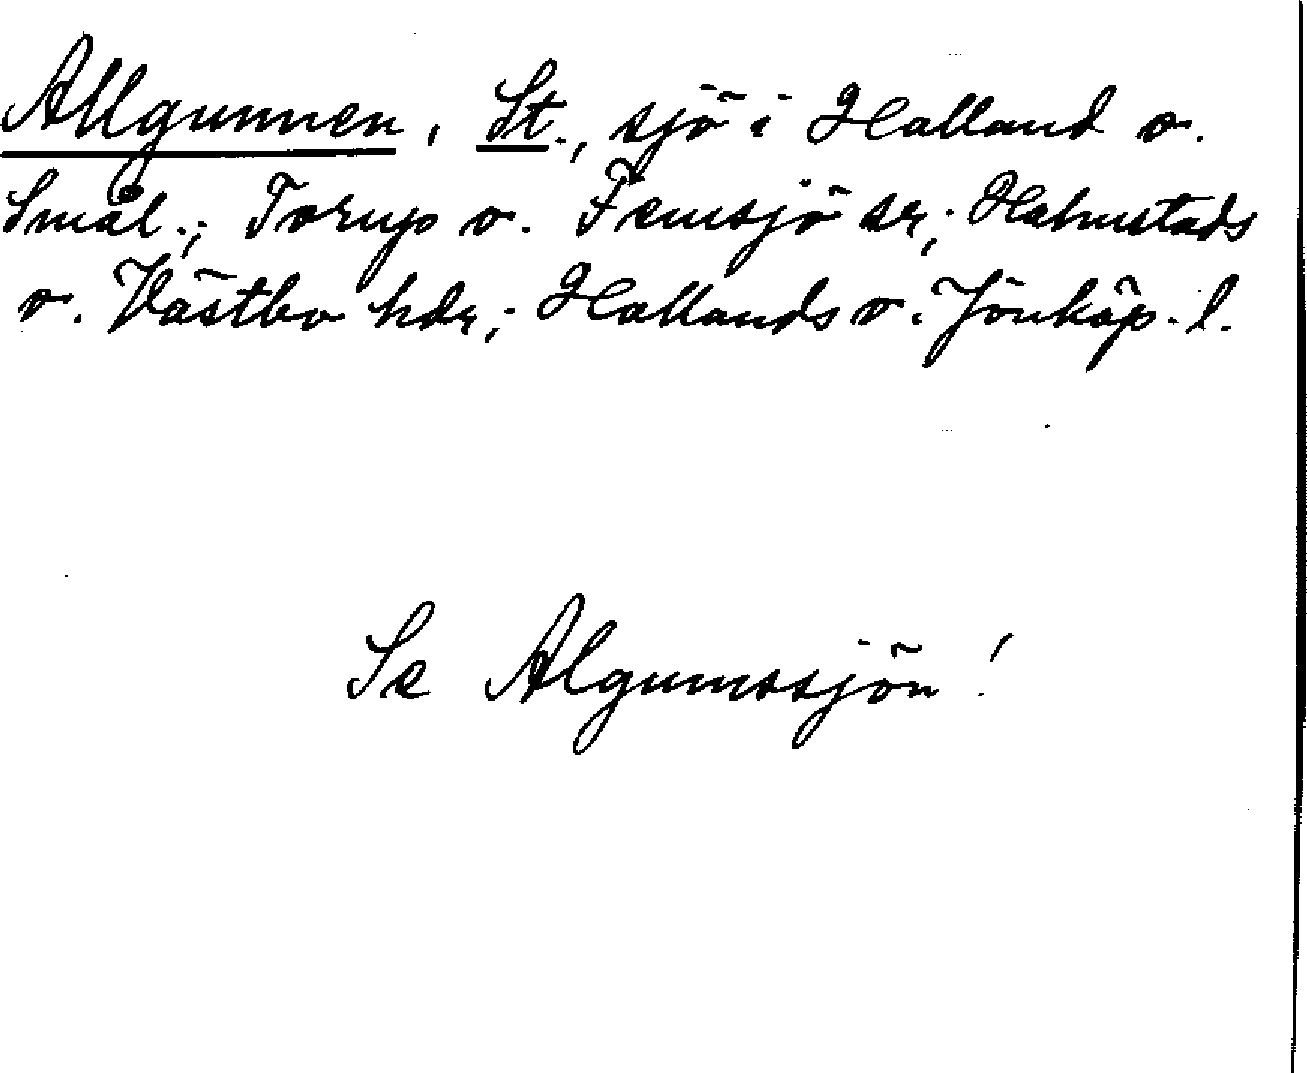 Allgunnen, St., sjö i Halland o.
Smål.; Torup o. Femsjö sr; Halmstads
o. Västbo hdr; Hallands o. Jönköp. l.
Se Algunssjön!